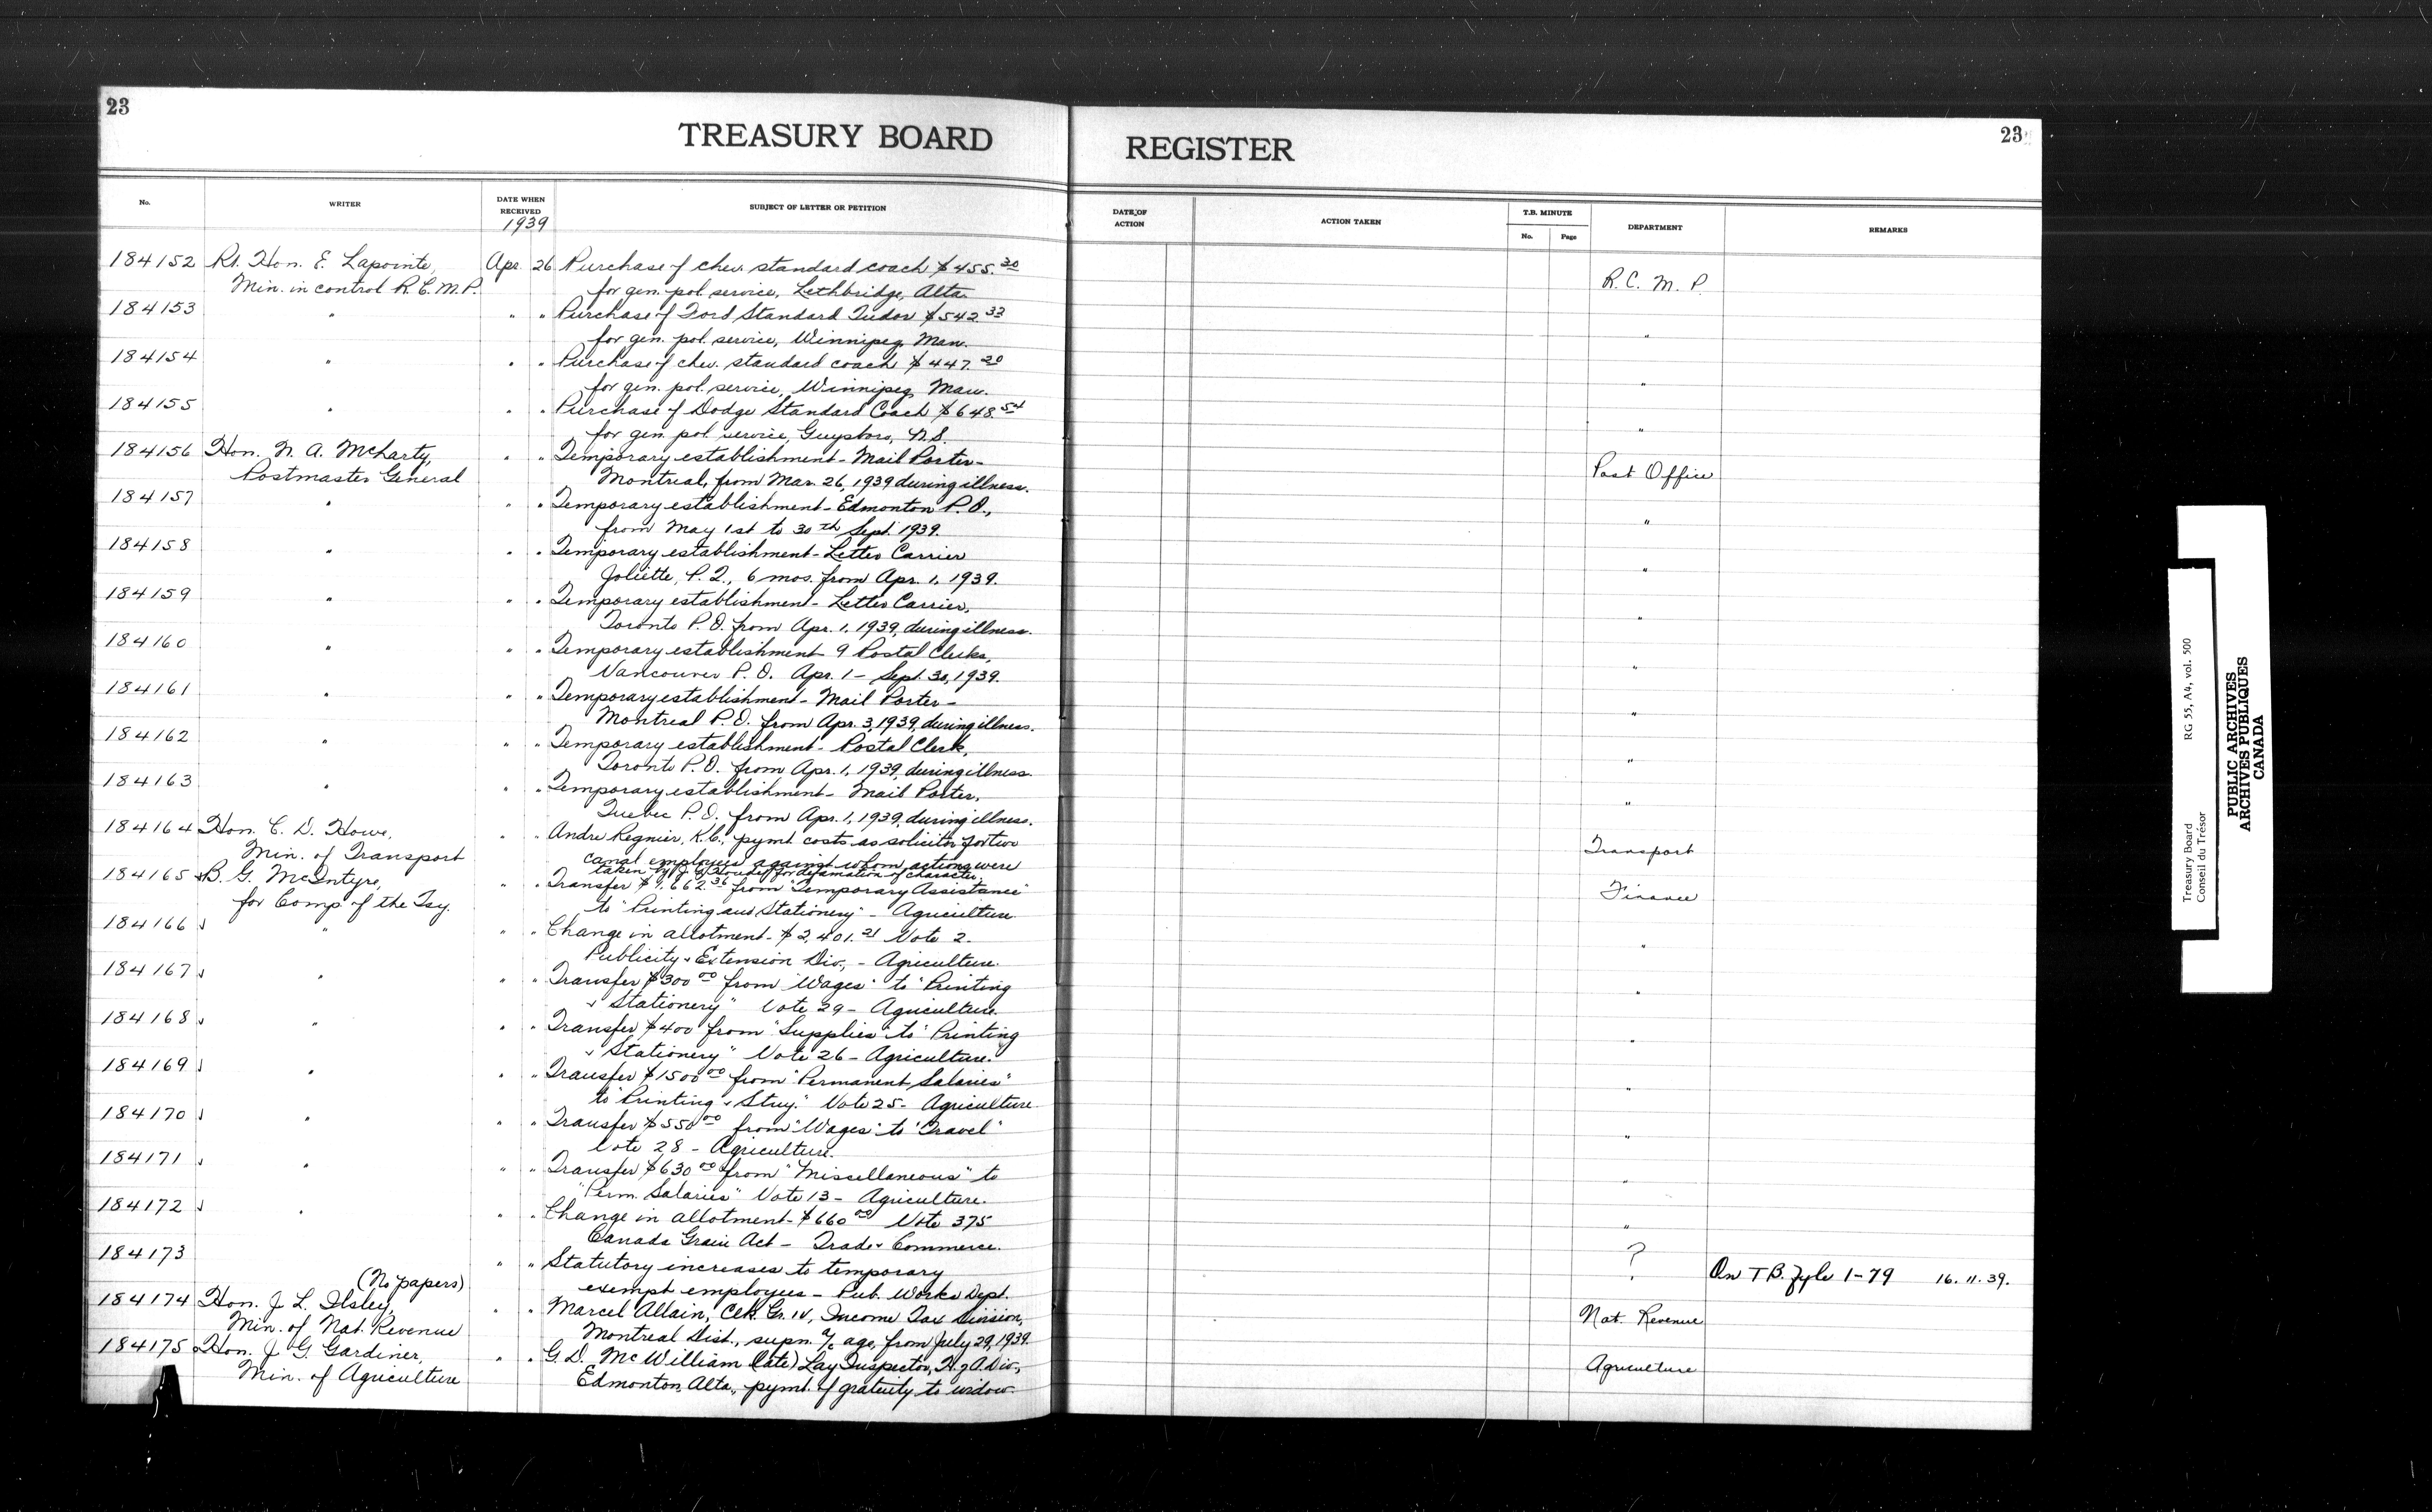 23
TREASURY BOARD
REGISTER
23
No.
WRITER
DATE WHEN RECEIVED
1939
SUBJECT OF LETTER OR PETITION
DATE OF ACTION
ACTION TAKEN
T.B. MINUTE
No.
Page
DEPARTMENT
REMARKS
184152 Rt. Hon. E. Lapointe, Apr. 26 Purchase of chev. standard coach $455.30 R.C.M.P.
Min. in control R.C.M.P. for gen. pol. service, Lethbridge, Alta.
184153 " " " Purchase of Ford Standard Tudor $542.33 "
for gen. pol. service, Winnipeg, Man.
184154 " " " Purchase of chev. standard coach $447.20 "
for gen. pol. service, Winnipeg, Man.
184155 " " " Purchase of Dodge Standard Coach $648.54 "
for gen. pol. service, Guysboro, N.S.
184156 Hon. N. A. McLarty, " " Temporary establishment - Mail Porter - Post Office
Postmaster General Montreal, from Mar. 26, 1939 during illness.
184157 " " " Temporary establishment - Edmonton P.O., "
from May 1st to 30th Sept. 1939.
184158 " " " Temporary establishment - Letter Carrier "
Joliette, P.Q., 6 mos. from Apr. 1, 1939.
184159 " " " Temporary establishment - Letter Carrier, "
Toronto P.O. from Apr. 1, 1939, during illness.
184160 " " " Temporary establishment 9 Postal Clerks, "
Vancouver P.O. Apr. 1 - Sept. 30, 1939.
184161 " " " Temporary establishment - Mail Porter - "
Montreal P.O. from Apr. 3, 1939, during illness.
184162 " " " Temporary establishment - Postal Clerk, "
Toronto P.O. from Apr. 1, 1939, during illness.
184163 " " " Temporary establishment - Mail Porter, "
Quebec P.O. from Apr. 1, 1939, during illness.
184164 Hon. C. D. Howe, " " Andre Regnier, K.C., pymt costs as solicitor for two Transport
Min. of Transport canal employees against whom actions were
taken by J. A. for defamation of character.
184165 B. G. McIntyre, " " Transfer $9,662.36 from "Temporary Assistance" Finance
for Comp. of the Tsy. to "Printing and Stationery" - Agriculture
184166 " " " Change in allotment - $2,401.21 Vote 2 - "
Publicity & Extension Div., - Agriculture.
184167 " " " Transfer $300.00 from "Wages" to "Printing "
& Stationery" Vote 29 - Agriculture.
184168 " " " Transfer $400 from "Supplies" to "Printing "
& Stationery" Vote 26 - Agriculture.
184169 " " " Transfer $1500.00 from "Permanent Salaries" "
to "Printing & Stny." Vote 25 - Agriculture.
184170 " " " Transfer $550.00 from "Wages" to "Travel" "
Vote 28 - Agriculture.
184171 " " " Transfer $630.00 from "Miscellaneous" to "
"Perm. Salaries" Vote 13 - Agriculture.
184172 " " " Change in allotment - $660.00 Vote 375 "
Canada Grain Act - Trade & Commerce.
184173 " " Statutory increases to temporary ? On T.B. Fyle 1-79 16.11.39.
(No papers) exempt employees - Pub. Works Dept.
184174 Hon. J. L. Ilsley, " " Marcel Allain, Clk. Gr. IV, Income Tax Division, Nat. Revenue
Min. of Nat. Revenue Montreal Dist., supn. a/c age, from July 29, 1939.
184175 Hon. J. G. Gardiner, " " G. D. McWilliam (late) Lay Inspector, H. of A. Div., Agriculture
Min. of Agriculture Edmonton, Alta., pymt. of gratuity to widow.
Treasury Board RG 55, A4, vol. 500
Conseil du Trésor
PUBLIC ARCHIVES
ARCHIVES PUBLIQUES
CANADA